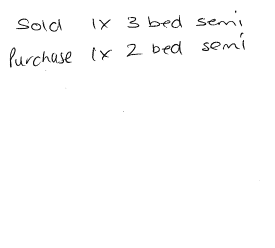 Sold 1x 3 bed semi
Purchase 1x 2 bed semi